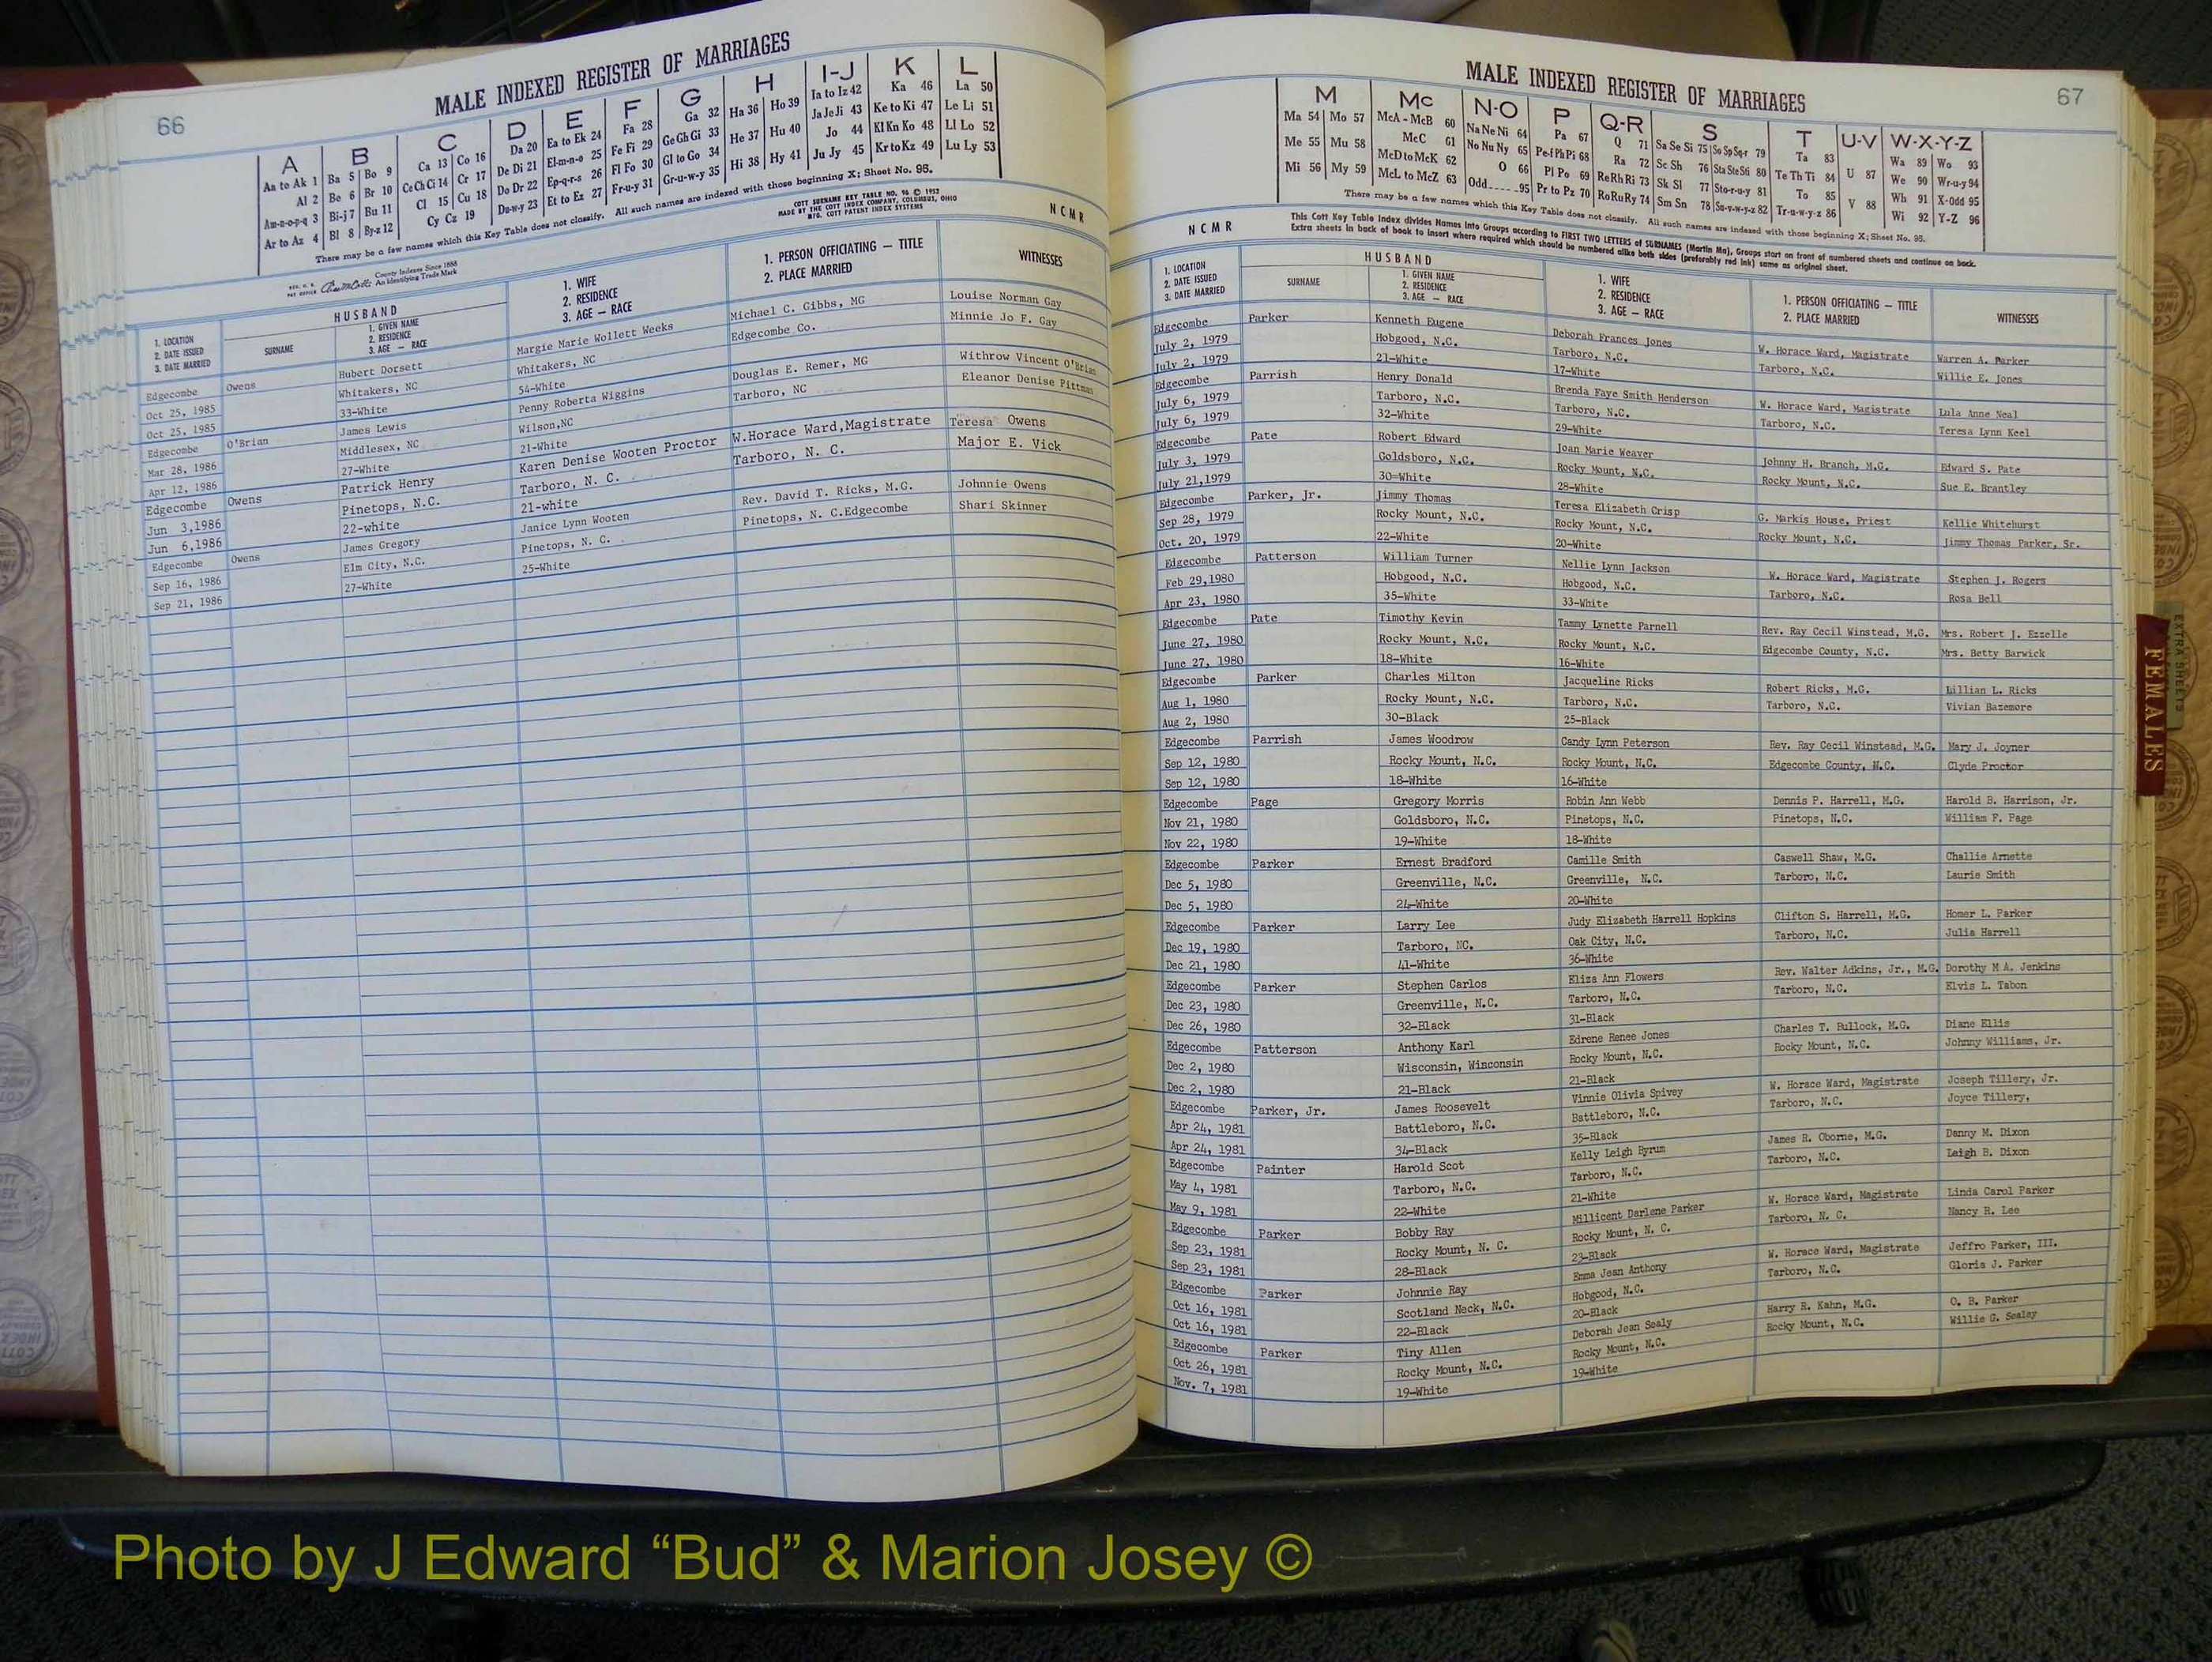 66
MALE INDEXED REGISTER OF MARRIAGES
A B C D E F G H I-J K L
Aa to Ak 1 Ba 5 Bo 9 Ca 13 Co 16 Da 20 Ea to Ek 24 Fa 28 Ga 32 Ha 36 Ho 39 Ia to Iz 42 Ka 46 La 50
Al 2 Be 6 Br 10 Ce Ch Ci 14 Cr 17 De Di 21 El-m-n-o 25 Fe Fi 29 Ge Gh Gi 33 He 37 Hu 40 Ja Je Ji 43 Ke to Ki 47 Le Li 51
Am-n-o-p-q 3 Bi-j 7 Bu 11 Cl 15 Cu 18 Do Dr 22 Ep-q-r-s 26 Fl Fo 30 Gl to Go 34 Hi 38 Hy 41 Jo 44 Kl Kn Ko 48 Ll Lo 52
Ar to Az 4 Bl 8 By-z 12 Cy Cz 19 Du-w-y 23 Et to Ez 27 Fr-u-y 31 Gr-u-w-y 35 Ju Jy 45 Kr to Kz 49 Lu Ly 53
There may be a few names which this Key Table does not classify. All such names are indexed with those beginning X; Sheet No. 95.
County Indexes Since 1888
An Identifying Trade Mark
COTT SURNAME KEY TABLE NO. 96 © 1952
MADE BY THE COTT INDEX COMPANY, COLUMBUS, OHIO
MFG. COTT PATENT INDEX SYSTEMS
N C M R
1. LOCATION
2. DATE ISSUED
3. DATE MARRIED
HUSBAND
SURNAME
1. GIVEN NAME
2. RESIDENCE
3. AGE — RACE
1. WIFE
2. RESIDENCE
3. AGE — RACE
1. PERSON OFFICIATING — TITLE
2. PLACE MARRIED
WITNESSES
Edgecombe Owens Hubert Dorsett Margie Marie Wollett Weeks Michael C. Gibbs, MG Louise Norman Gay
Oct 25, 1985 Whitakers, NC Whitakers, NC Edgecombe Co. Minnie Jo F. Gay
Oct 25, 1985 33-White 54-White
Edgecombe O'Brian James Lewis Penny Roberta Wiggins Douglas E. Remer, MG Withrow Vincent O'Brian
Mar 28, 1986 Middlesex, NC Wilson,NC Tarboro, NC Eleanor Denise Pittman
Apr 12, 1986 27-White 21-White
Edgecombe Owens Patrick Henry Karen Denise Wooten Proctor W.Horace Ward,Magistrate Teresa Owens
Jun 3,1986 Pinetops, N.C. Tarboro, N. C. Tarboro, N. C. Major E. Vick
Jun 6,1986 22-white 21-white
Edgecombe Owens James Gregory Janice Lynn Wooten Rev. David T. Ricks, M.G. Johnnie Owens
Sep 16, 1986 Elm City, N.C. Pinetops, N. C. Pinetops, N. C.Edgecombe Shari Skinner
Sep 21, 1986 27-White 25-White
67
MALE INDEXED REGISTER OF MARRIAGES
M Mc N-O P Q-R S T U-V W-X-Y-Z
Ma 54 Mo 57 McA - McB 60 Na Ne Ni 64 Pa 67 Q 71 Sa Se Si 75 So Sp Sq-r 79 Ta 83 U 87 Wa 89 Wo 93
Me 55 Mu 58 McC 61 No Nu Ny 65 Pe-f Ph Pi 68 Ra 72 Sc Sh 76 Sta Ste Sti 80 Te Th Ti 84 V 88 We 90 Wr-u-y 94
Mi 56 My 59 McD to McK 62 O 66 Pl Po 69 Re Rh Ri 73 Sk Sl 77 Sto-r-u-y 81 To 85 Wh 91 X-Odd 95
McL to McZ 63 Odd 95 Pr to Pz 70 Ro Ru Ry 74 Sm Sn 78 Su-v-w-y-z 82 Tr-u-w-y-z 86 Wi 92 Y-Z 96
There may be a few names which this Key Table does not classify. All such names are indexed with those beginning X; Sheet No. 95.
N C M R
This Cott Key Table Index divides Names into Groups according to FIRST TWO LETTERS of SURNAMES (Martin Ma), Groups start on front of numbered sheets and continue on back.
Extra sheets in back of book to insert where required which should be numbered alike both sides (preferably red ink) same as original sheet.
1. LOCATION
2. DATE ISSUED
3. DATE MARRIED
HUSBAND
SURNAME
1. GIVEN NAME
2. RESIDENCE
3. AGE — RACE
1. WIFE
2. RESIDENCE
3. AGE — RACE
1. PERSON OFFICIATING — TITLE
2. PLACE MARRIED
WITNESSES
Edgecombe Parker Kenneth Eugene Deborah Frances Jones W. Horace Ward, Magistrate Warren A. Parker
July 2, 1979 Hobgood, N.C. Tarboro, N.C. Tarboro, N.C. Willie E. Jones
July 2, 1979 21-White 17-White
Edgecombe Parrish Henry Donald Brenda Faye Smith Henderson W. Horace Ward, Magistrate Lula Anne Neal
July 6, 1979 Tarboro, N.C. Tarboro, N.C. Tarboro, N.C. Teresa Lynn Keel
July 6, 1979 32-White 29-White
Edgecombe Pate Robert Edward Joan Marie Weaver Johnny H. Branch, M.G. Edward S. Pate
July 3, 1979 Goldsboro, N.C. Rocky Mount, N.C. Rocky Mount, N.C. Sue E. Brantley
July 21,1979 30=White 28-White
Edgecombe Parker, Jr. Jimmy Thomas Teresa Elizabeth Crisp G. Markis House, Priest Kellie Whitehurst
Sep 28, 1979 Rocky Mount, N.C. Rocky Mount, N.C. Rocky Mount, N.C. Jimmy Thomas Parker, Sr.
Oct. 20, 1979 22-White 20-White
Edgecombe Patterson William Turner Nellie Lynn Jackson W. Horace Ward, Magistrate Stephen J. Rogers
Feb 29,1980 Hobgood, N.C. Hobgood, N.C. Tarboro, N.C. Rosa Bell
Apr 23, 1980 35-White 33-White
Edgecombe Pate Timothy Kevin Tammy Lynette Parnell Rev. Ray Cecil Winstead, M.G. Mrs. Robert J. Ezzelle
June 27, 1980 Rocky Mount, N.C. Rocky Mount, N.C. Edgecombe County, N.C. Mrs. Betty Barwick
June 27, 1980 18-White 16-White
Edgecombe Parker Charles Milton Jacqueline Ricks Robert Ricks, M.G. Lillian L. Ricks
Aug 1, 1980 Rocky Mount, N.C. Tarboro, N.C. Tarboro, N.C. Vivian Bazemore
Aug 2, 1980 30-Black 25-Black
Edgecombe Parrish James Woodrow Candy Lynn Peterson Rev. Ray Cecil Winstead, M.G. Mary J. Joyner
Sep 12, 1980 Rocky Mount, N.C. Rocky Mount, N.C. Edgecombe County, N.C. Clyde Proctor
Sep 12, 1980 18-White 16-White
Edgecombe Page Gregory Morris Robin Ann Webb Dennis P. Harrell, M.G. Harold B. Harrison, Jr.
Nov 21, 1980 Goldsboro, N.C. Pinetops, N.C. Pinetops, N.C. William F. Page
Nov 22, 1980 19-White 18-White
Edgecombe Parker Ernest Bradford Camille Smith Caswell Shaw, M.G. Challie Arnette
Dec 5, 1980 Greenville, N.C. Greenville, N.C. Tarboro, N.C. Laurie Smith
Dec 5, 1980 24-White 20-White
Edgecombe Parker Larry Lee Judy Elizabeth Harrell Hopkins Clifton S. Harrell, M.G. Homer L. Parker
Dec 19, 1980 Tarboro, NC. Oak City, N.C. Tarboro, N.C. Julia Harrell
Dec 21, 1980 41-White 36-White
Edgecombe Parker Stephen Carlos Eliza Ann Flowers Rev. Walter Adkins, Jr., M.G. Dorothy M A. Jenkins
Dec 23, 1980 Greenville, N.C. Tarboro, N.C. Tarboro, N.C. Elvis L. Tabon
Dec 26, 1980 32-Black 31-Black
Edgecombe Patterson Anthony Karl Edrene Renee Jones Charles T. Bullock, M.G. Diane Ellis
Dec 2, 1980 Wisconsin, Wisconsin Rocky Mount, N.C. Rocky Mount, N.C. Johnny Williams, Jr.
Dec 2, 1980 21-Black 21-Black
Edgecombe Parker, Jr. James Roosevelt Vinnie Olivia Spivey W. Horace Ward, Magistrate Joseph Tillery, Jr.
Apr 24, 1981 Battleboro, N.C. Battleboro, N.C. Tarboro, N.C. Joyce Tillery,
Apr 24, 1981 34-Black 35-Black
Edgecombe Painter Harold Scot Kelly Leigh Byrum James R. Oborne, M.G. Danny M. Dixon
May 4, 1981 Tarboro, N.C. Tarboro, N.C. Tarboro, N.C. Leigh B. Dixon
May 9, 1981 22-White 21-White
Edgecombe Parker Bobby Ray Millicent Darlene Parker W. Horace Ward, Magistrate Linda Carol Parker
Sep 23, 1981 Rocky Mount, N. C. Rocky Mount, N. C. Tarboro, N. C. Nancy R. Lee
Sep 23, 1981 28-Black 23-Black
Edgecombe Parker Johnnie Ray Emma Jean Anthony W. Horace Ward, Magistrate Jeffro Parker, III.
Oct 16, 1981 Scotland Neck, N.C. Hobgood, N.C. Tarboro, N.C. Gloria J. Parker
Oct 16, 1981 22-Black 20-Black
Edgecombe Parker Tiny Allen Deborah Jean Sealy Harry R. Kahn, M.G. O. B. Parker
Oct 26, 1981 Rocky Mount, N.C. Rocky Mount, N.C. Rocky Mount, N.C. Willie G. Sealey
Nov. 7, 1981 19-White 19-White
EXTRA SHEETS
FEMALES
Photo by J Edward “Bud” & Marion Josey ©